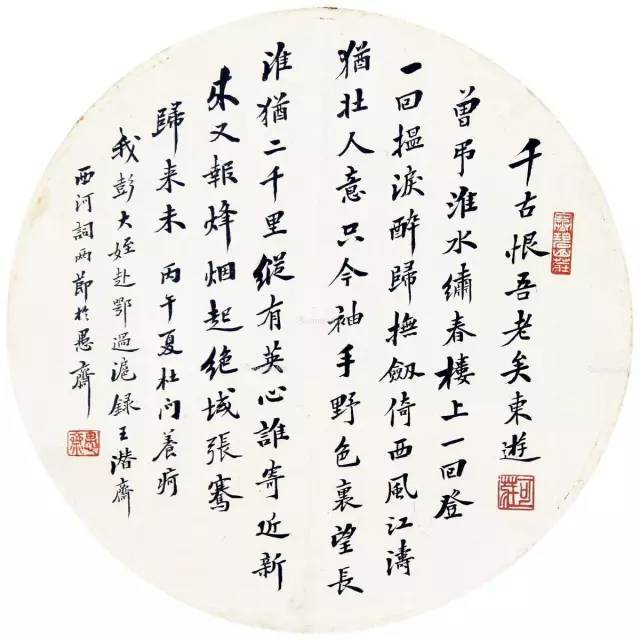 千古恨吾老矣東遊
曾弔淮水繡春樓上一回登
一回搵淚醉歸撫劔倚西風江濤
猶壯人意只今袖手野色裏望長
淮猶二千里縱有英心誰寄近新
來又報烽烟起絕域張騫
歸来未 丙午夏杜门養疴
我彭大姪赴鄂過滬録王潛齋
西河詞兩節於愚齋
愚齋